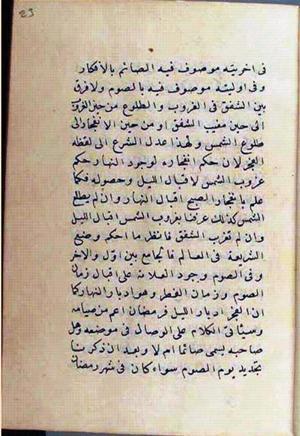 23
فى اخريته موصوف فيه الصائم بالافطار
وفى اوليته موصوف فيه بالصوم ولا فرق
بين الشفق فى الغروب والطلوع من حين الغروب
الى حين مغيب الشفق او من حين الانفجار الى
طلوع الشمس ولهذا عدل الشرع الى لفظة
الفجر لان حكم انفجاره لوجود النهار حكم
غروب الشمس لاقبال الليل وحصوله فكما
علم بانفجار الصبح اقبال النهار وان لم يطلع
الشمس كذلك عرفنا بغروب الشمس اقبال الليل
وان لم تغرب الشفق فانظر ما احكم وضع
الشريعة فى العالم فالجامع بين الاول والاخر
وفى الصوم وجود العلامة على اقبال زمان
الصوم وزمان الفطر وهو ادبار النهار كما
ان الفجر ادبار الليل فرمضان اعم من صيامه
وسيأتى الكلام على الوصال فى موضعه وهل
صاحبه يسمى صائما ام لا وبعد ان ذكرنا
تحديد يوم الصوم سواء كان فى شهر رمضان